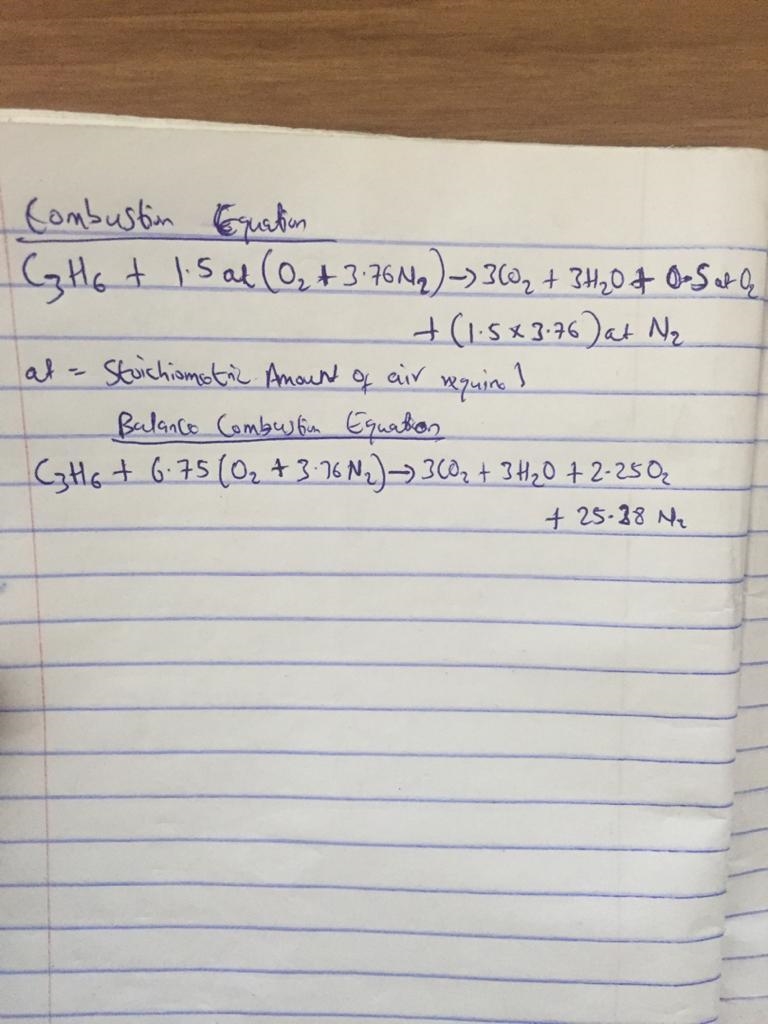 Combustion Equation
C₃H₆ + 1.5 at (O₂ + 3.76N₂) → 3CO₂ + 3H₂O + 0.5 at O₂
+ (1.5 x 3.76) at N₂
at = Stoichiometric Amount of air required
Balance Combustion Equation
C₃H₆ + 6.75 (O₂ + 3.76 N₂) → 3CO₂ + 3H₂O + 2.25O₂
+ 25.38 N₂